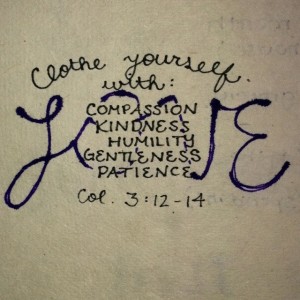 Clothe yourself.
with:
LOVE
COMPASSION
KINDNESS
HUMILITY
GENTLENESS
PATIENCE
Col. 3:12-14